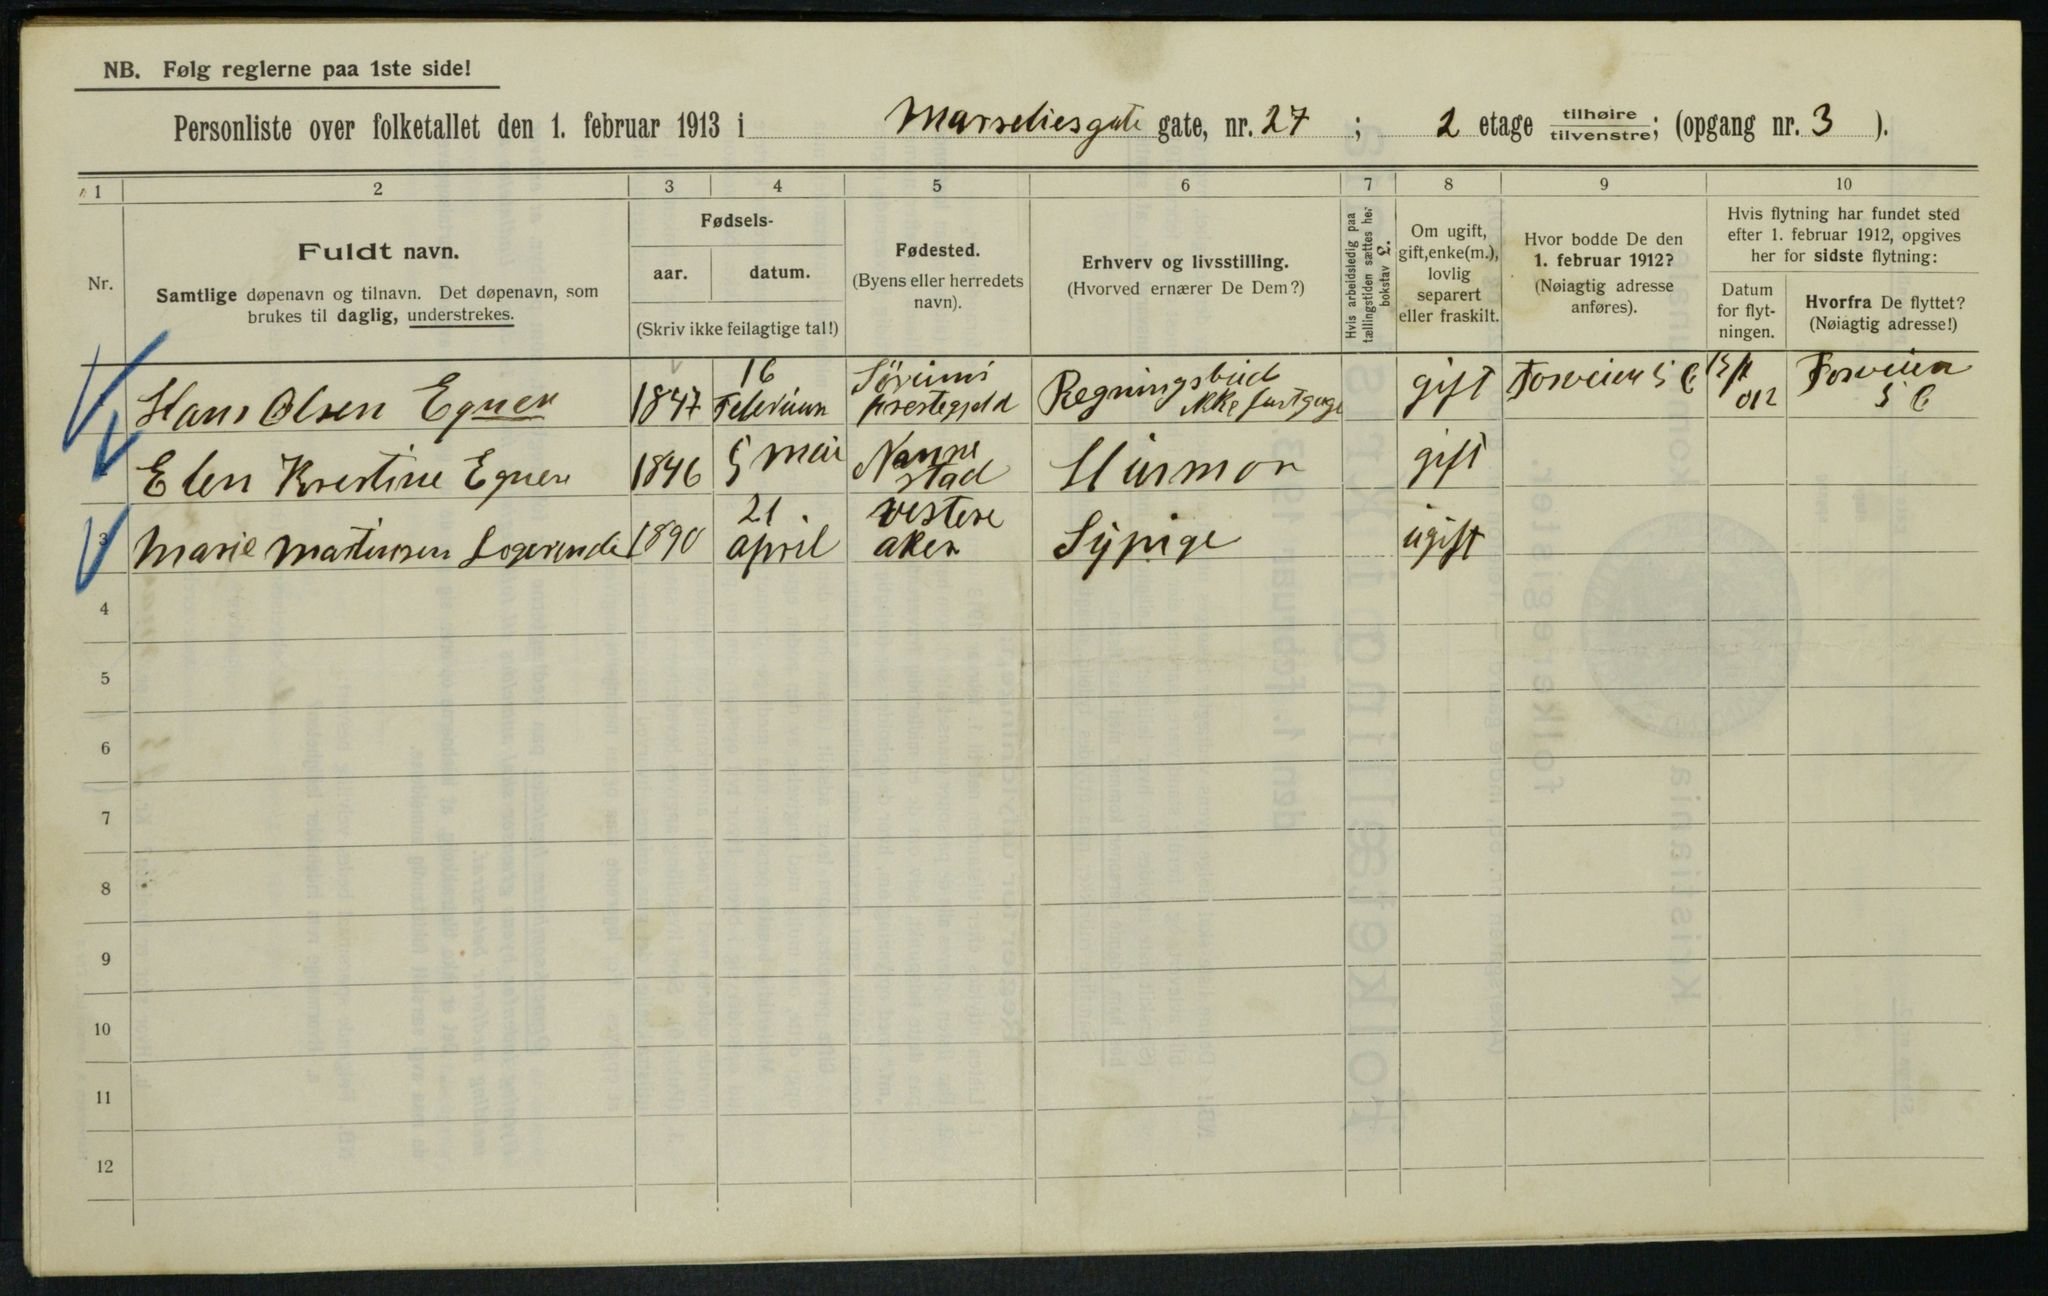 NB. Følg reglerne paa 1ste side!
Personliste over folketallet den 1. februar 1913 i Marseliesgate gate, nr. 27 ; 2 etage tilhøire tilvenstre; (opgang nr. 3 ).
1 2 3 4 5 6 7 8 9 10
Nr.
Fuldt navn.
Samtlige døpenavn og tilnavn. Det døpenavn, som
brukes til daglig, understrekes.
Fødsels-
aar. datum.
(Skriv ikke feilagtige tal!)
Fødested.
(Byens eller herredets
navn).
Erhverv og livsstilling.
(Hvorved ernærer De Dem?)
Hvis arbeidsledig paa
tællingstiden sættes her
bokstav L.
Om ugift,
gift, enke(m.),
lovlig
separert
eller fraskilt.
Hvor bodde De den
1. februar 1912?
(Nøiagtig adresse
anføres).
Hvis flytning har fundet sted
efter 1. februar 1912, opgives
her for sidste flytning:
Datum
for flyt-
ningen.
Hvorfra De flyttet?
(Nøiagtig adresse!)
Hans Olsen Egner 1847 16 Februar Sørums prestegjeld Regningsbud ikke fastgage gift Fosveien 5 C 012 Fosveien 5 C
2 Elen Kristine Egner 1846 5 Mai Nannestad Husmor gift
3 Marie Martinsen Logerende 1890 21. april vestere aker Sypige ugift
4
5
6
7
8
9
10
11
12